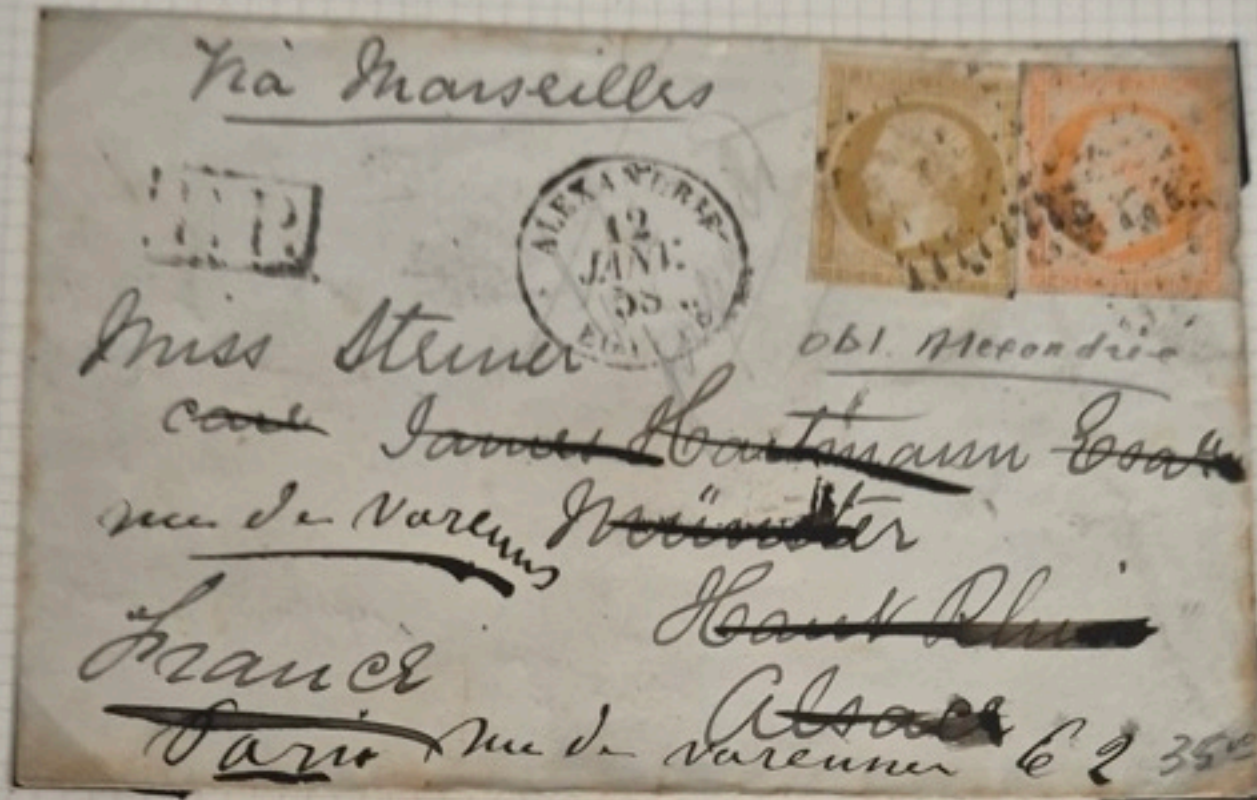 Via Marseilles
ALEXANDRIE
12
JANV.
58
Miss Steiner
obl. Alexandrie
care James Hartmann Esq
rue de Varennes Münster
Haut Rhin
France
Alsace
Paris rue de varennes 62
35